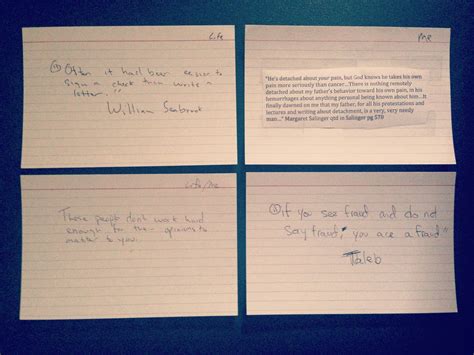 Life
Often it had been easier to
sign a check than write a
letter."
William Seabrook
"He's detached about your pain, but God knows he takes his own
pain more seriously than cancer...There is nothing remotely
detached about my father's behavior toward his own pain, in his
hemorrhages about anything personal being known about him...It
finally dawned on me that my father, for all his protestations and
lectures and writing about detachment, is a very, very needy
man..." Margaret Salinger qtd in Salinger pg 570
Life/Me
These people don't work hard
enough for their opinions to
matter to you.
"If you see fraud and do not
say fraud, you are a fraud"
Taleb